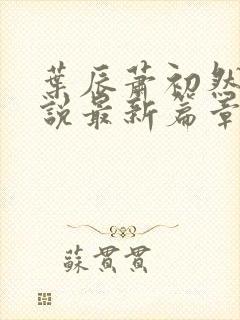 葉辰蕭初然
說最新篇章
蘇貫貫